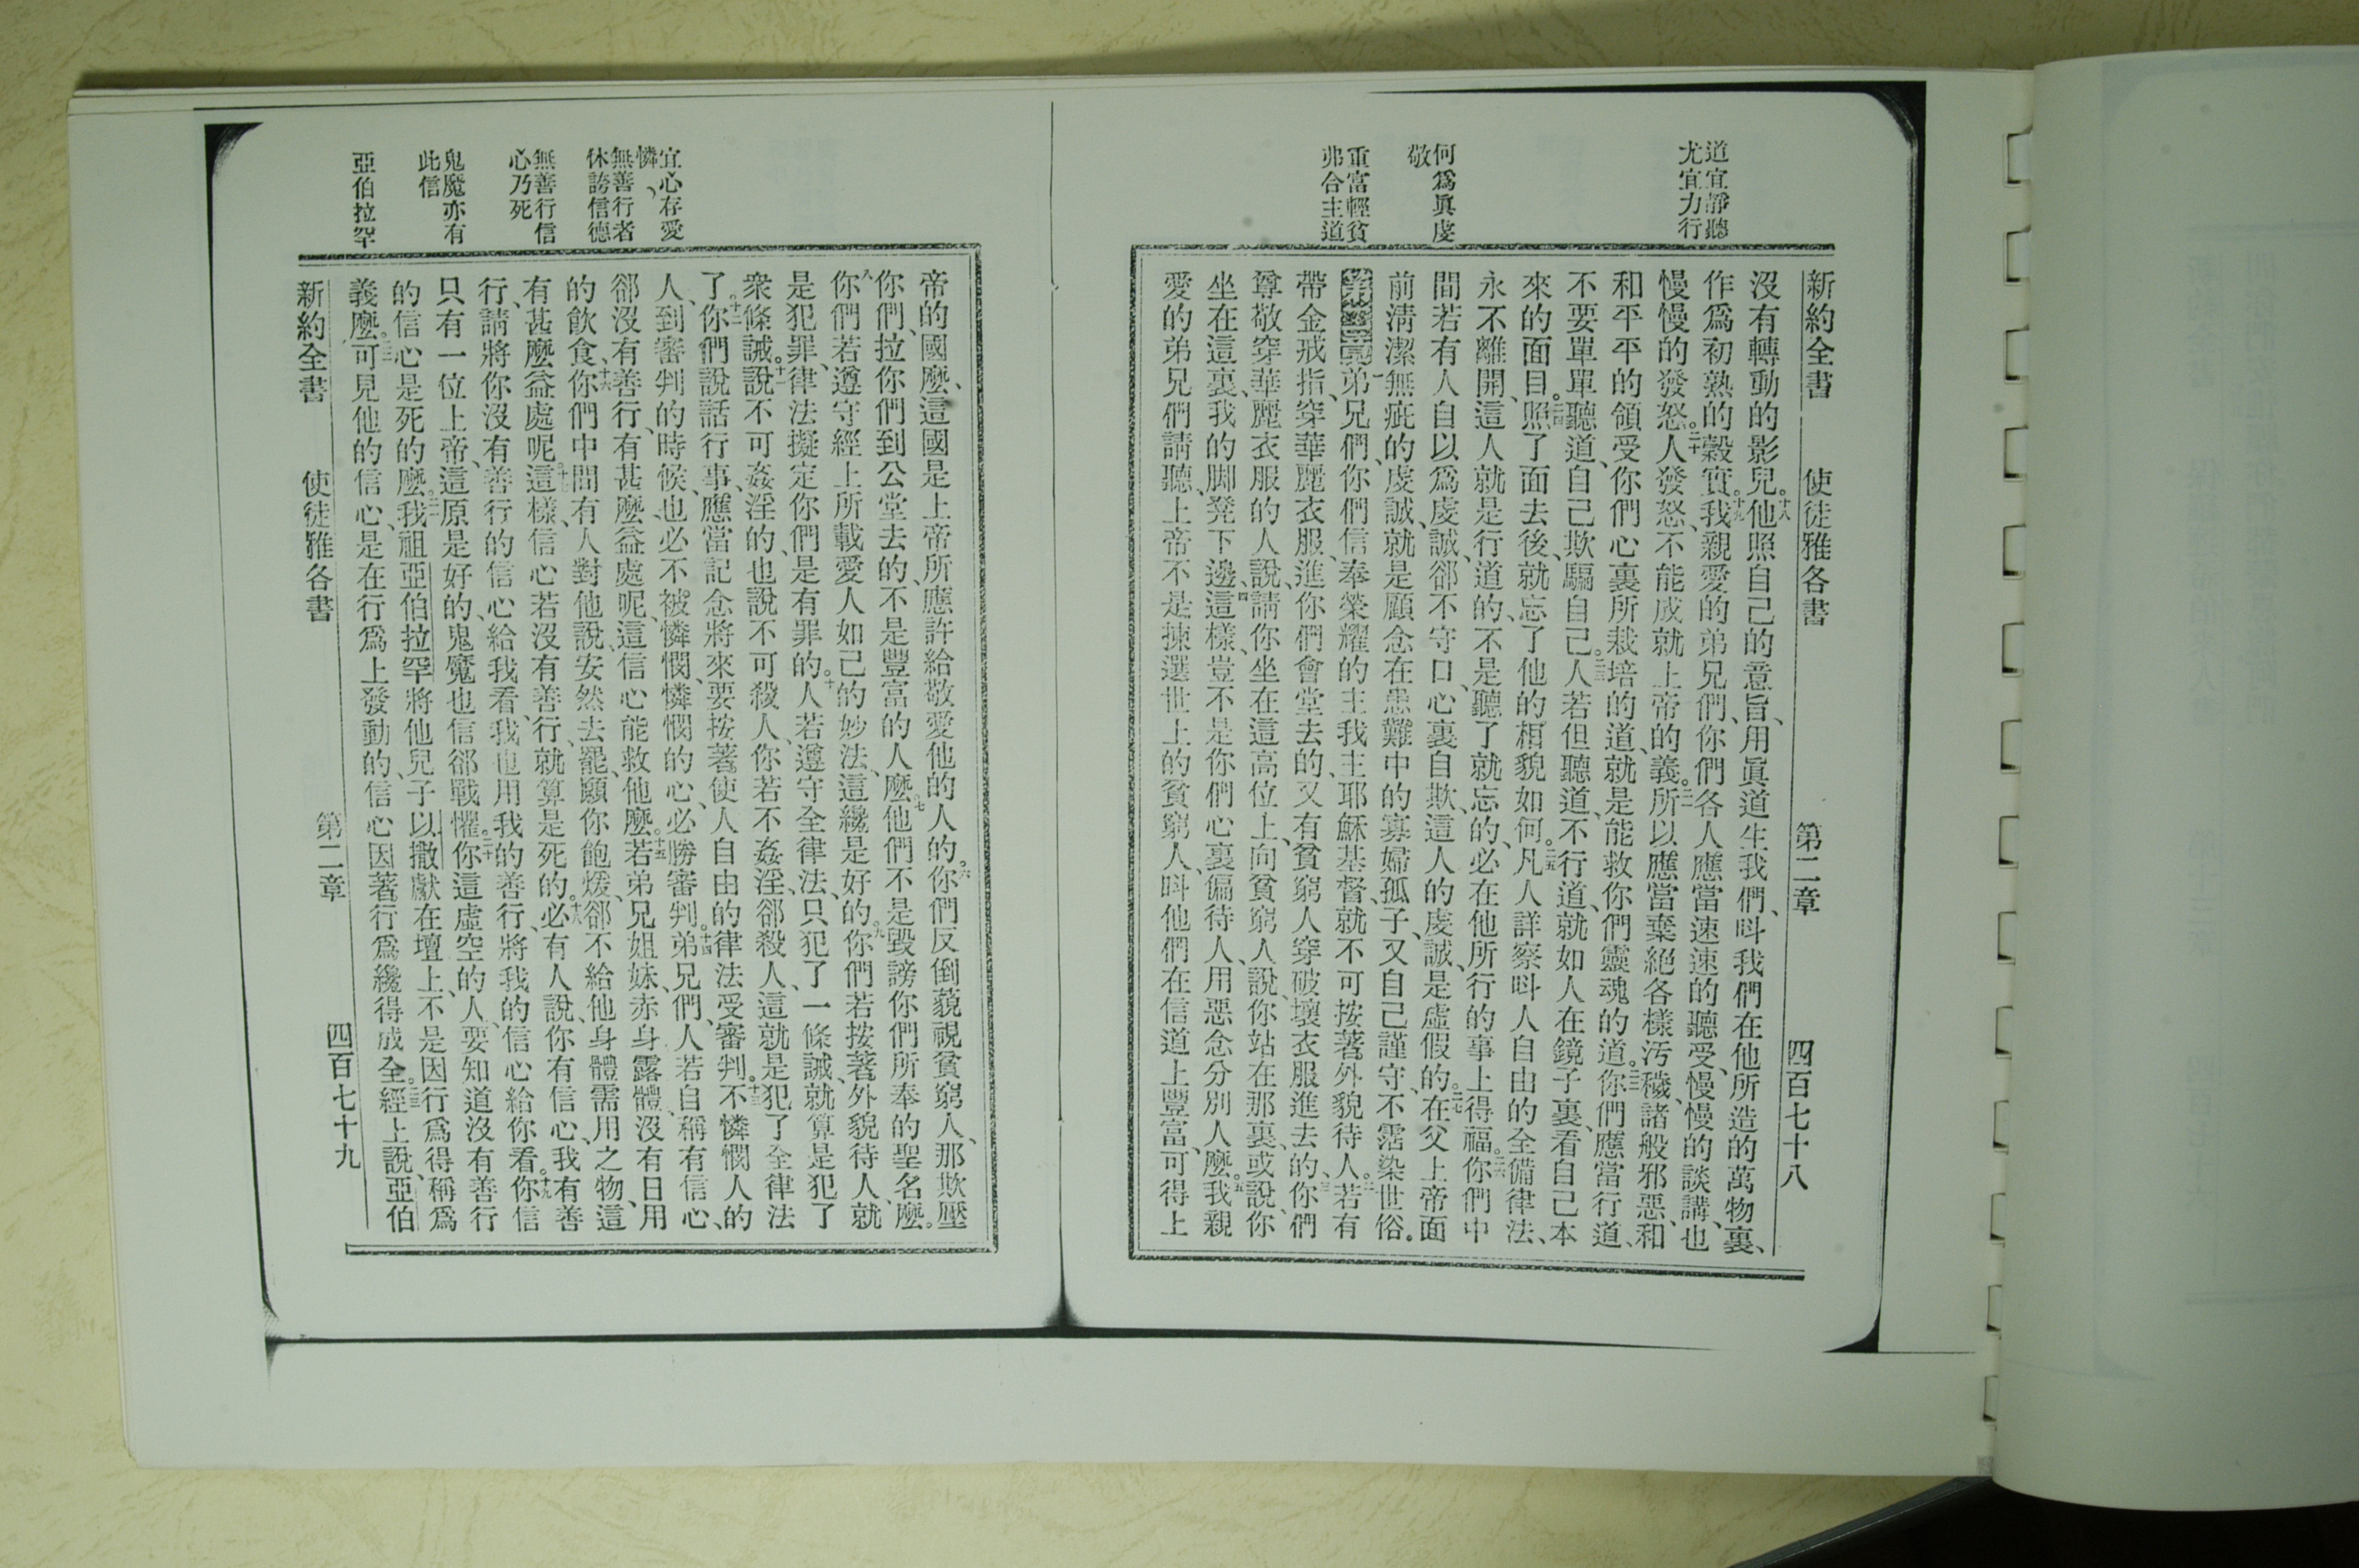 道宜靜聽
尤宜力行
何爲眞虔
敬
重富輕貧
弗合主道
新約全書 使徒雅各書 第二章 四百七十八
沒有轉動的影兒。十八他照自己的意旨、用眞道生我們、呌我們在他所造的萬物裏、
作爲初熟的穀實。十九我親愛的弟兄們、你們各人應當速速的聽受、慢慢的談講、也
慢慢的發怒。二十人發怒、不能成就上帝的義。二一所以應當棄絕各樣汚穢、諸般邪惡、和
和平平的領受你們心裏所栽培的道、就是能救你們靈魂的道。二二你們應當行道、
不要單單聽道、自己欺騙自己。二三人若但聽道、不行道、就如人在鏡子裏、看自己本
來的面目。二四照了面去後、就忘了他的相貌如何。二五凡人詳察呌人自由的全備律法、
永不離開、這人就是行道的、不是聽了就忘的、必在他所行的事上得福。二六你們中
間若有人自以爲虔誠、郤不守口、心裏自欺、這人的虔誠、是虛假的。二七在父上帝面
前淸潔無疵的虔誠、就是顧念在患難中的寡婦孤子、又自己謹守、不霑染世俗。
第二章一弟兄們、你們信奉榮耀的主我主耶穌基督、就不可按著外貌待人。二若有
帶金戒指、穿華麗衣服、進你們會堂去的、又有貧窮人穿破壞衣服進去的、三你們
尊敬穿華麗衣服的人說、請你坐在這高位上、向貧窮人說、你站在那裏、或說、你
坐在這裏、我的脚凳下邊、四這樣、豈不是你們心裏偏待人、用惡念分別人麽。五我親
愛的弟兄們請聽、上帝不是揀選世上的貧窮人、呌他們在信道上豐富、可得上
宜心存愛
憐、
無善行者
休誇信德
無善行信
心乃死
鬼魔亦有
此信
亞伯拉罕
帝的國麽、這國是上帝所應許給敬愛他的人的。六你們反倒藐視貧窮人、那欺壓
你們、拉你們到公堂去的、不是豐富的人麽。七他們不是毀謗你們所奉的聖名麽。
八你們若遵守經上所載愛人如己的妙法、這纔是好的。九你們若按著外貌待人、就
是犯罪、律法擬定你們是有罪的。十人若遵守全律法、只犯了一條誡、就算是犯了
衆條誡。十一說不可姦淫的、也說不可殺人、你若不姦淫、郤殺人、這就是犯了全律法
了。十二你們說話行事、應當記念將來要按著使人自由的律法受審判。十三不憐憫人的
人、到審判的時候、也必不被憐憫、憐憫的心、必勝審判。十四弟兄們、人若自稱有信心、
郤沒有善行、有甚麽益處呢、這信心能救他麽。十五若弟兄姐妹、赤身露體、沒有日用
的飮食、十六你們中間有人對他說、安然去罷、願你飽煖、郤不給他身體需用之物、這
有甚麽益處呢。十七這樣、信心若沒有善行、就算是死的。十八必有人說、你有信心、我有善
行、請將你沒有善行的信心給我看、我也用我的善行、將我的信心給你看。十九你信
只有一位上帝、這原是好的、鬼魔也信郤戰懼。二十你這虛空的人、要知道沒有善行
的信心是死的麽。二一我祖亞伯拉罕將他兒子以撒獻在壇上、不是因行爲得稱爲
義麽。二二可見他的信心、是在行爲上發動的、信心因著行爲纔得成全。二三經上說、亞伯
新約全書 使徒雅各書 第二章 四百七十九